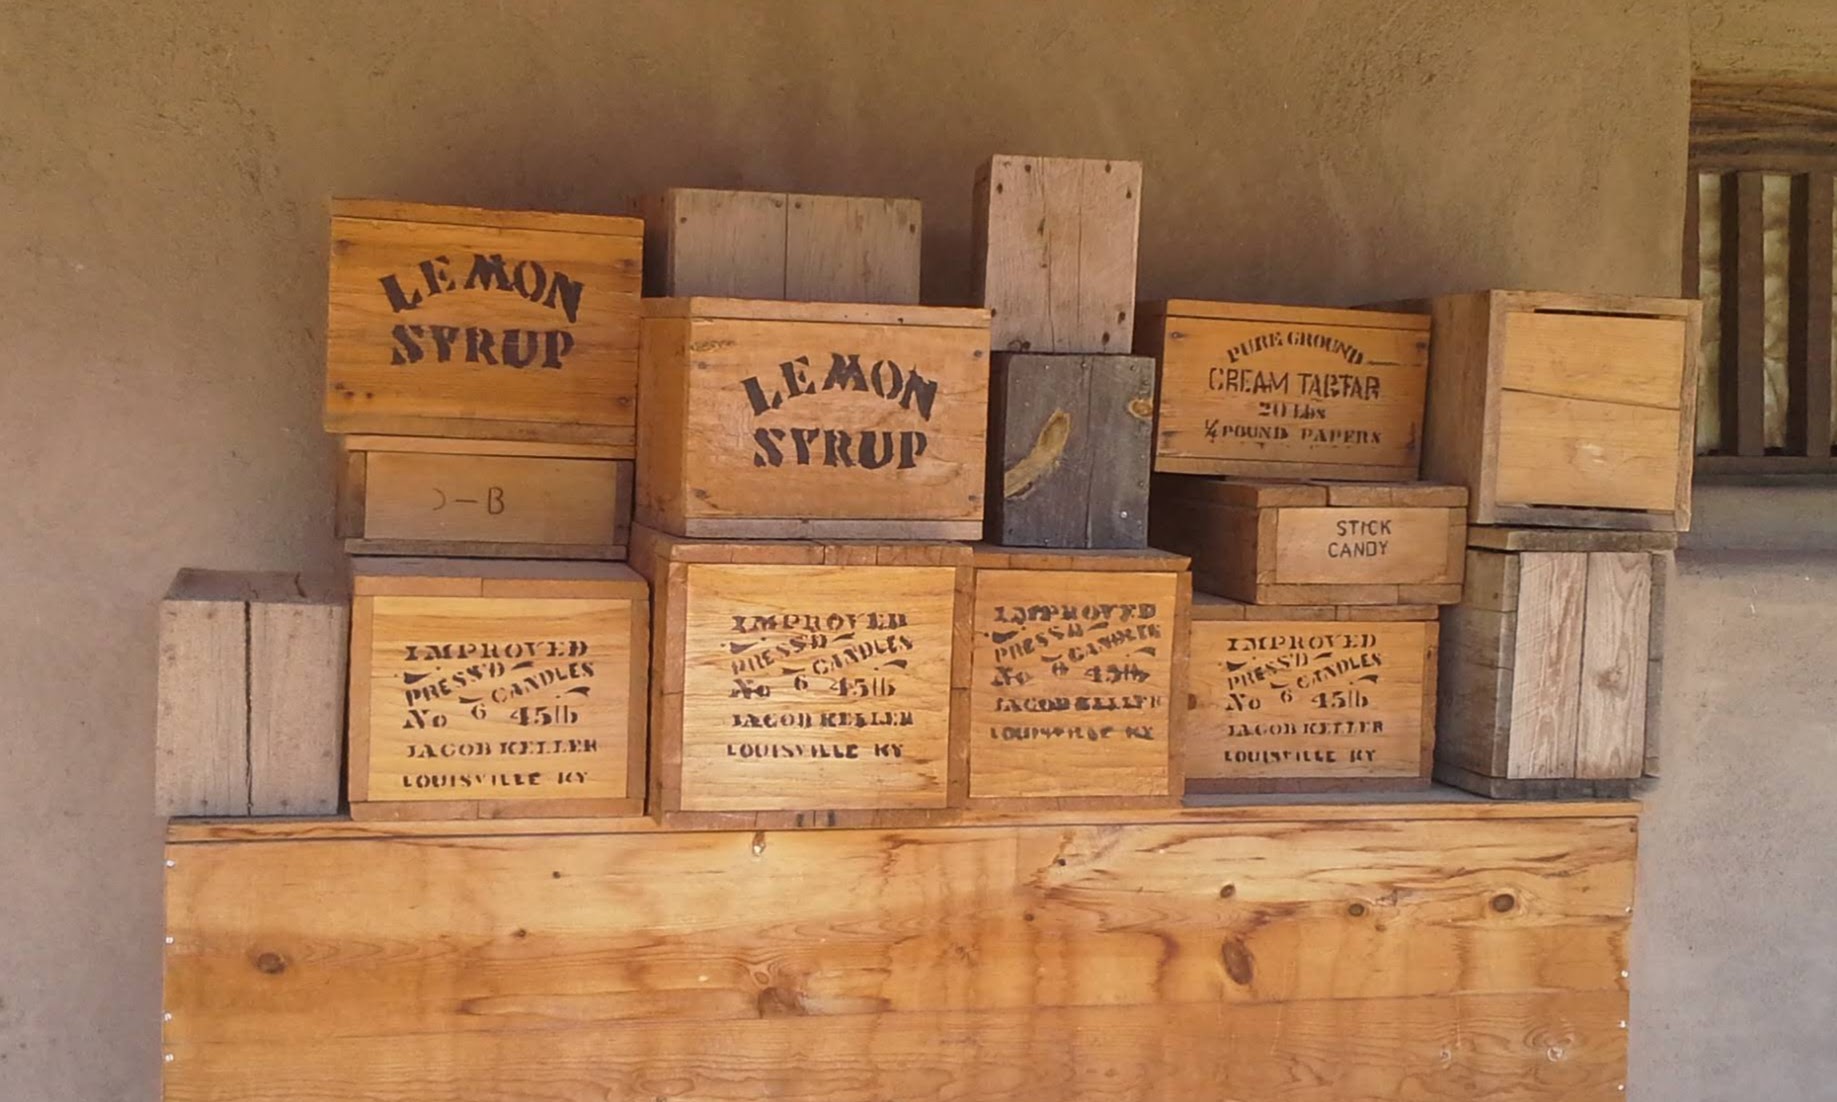 LEMON
SYRUP
LEMON
SYRUP
PURE GROUND
CREAM TARTAR
20 Lbs
¼ POUND PAPERS
-B
STICK
CANDY
IMPROVED
PRESS'D CANDLES
No 6 45lb
JACOB KELLER
LOUISVILLE KY
IMPROVED
PRESS'D CANDLES
No 6 45lb
JACOB KELLER
LOUISVILLE KY
IMPROVED
PRESS'D CANDLES
No 6 45lb
JACOB KELLER
LOUISVILLE KY
IMPROVED
PRESS'D CANDLES
No 6 45lb
JACOB KELLER
LOUISVILLE KY